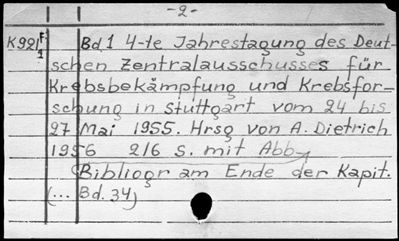 -2-
K921 F: 1 Bd 1 4-te Jahrestagung des Deut-
schen Zentralausschusses für
Krebsbekämpfung und Krebsfor-
schung in Stuttgart vom 24 bis
27 Mai 1955. Hrsg von A. Dietrich
1956 216 S. mit Abb
Bibliogr am Ende der Kapit.
(... Bd. 34)